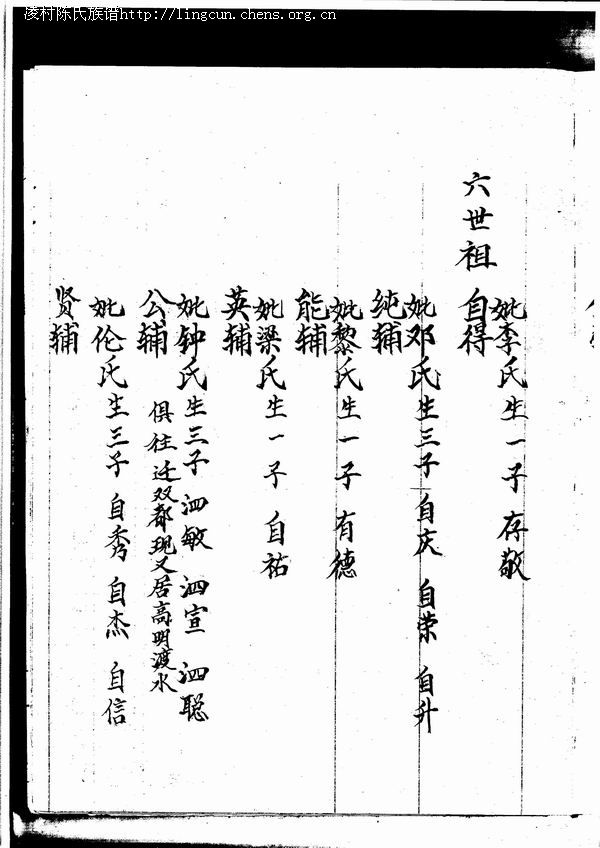 凌村陈氏族谱http://lingcun.chens.org.cn
妣李氏生一子 存敬
六世祖 自得
妣邓氏生三子 自庆 自荣 自升
纯辅
妣黎氏生一子 有德
能辅
妣梁氏生一子 自祐
英辅
妣钟氏生三子 泗敏 泗宣 泗聪
公辅 俱往迁双都现又居高明渡水
妣伦氏生三子 自秀 自杰 自信
贤辅